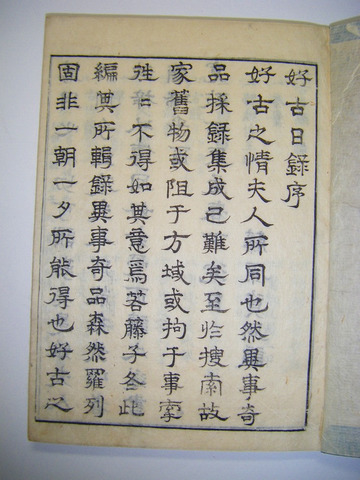 好古日録序
好古之情夫人所同也然異事奇
品採録集成已難矣至於搜索故
家舊物或阻于方域或拘于事牽
徃〻不得如其意焉若藤子冬此
編其所輯録異事奇品森然羅列
固非一朝一夕所能得也好古之